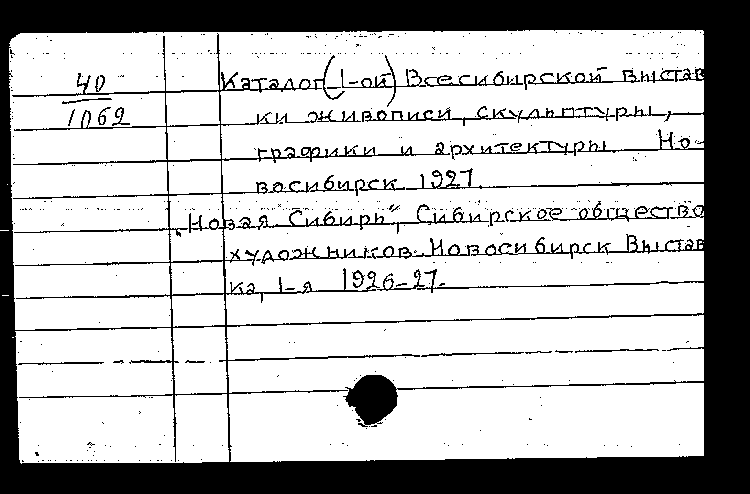 40
1069
Каталог (1-ой) Всесибирской выстав
ки живописи, скульптуры,
графики и архитектуры. Но-
восибирск 1927.
„Новая Сибирь“, Сибирское общество
художников. Новосибирск Выстав
ка, 1-я 1926-27.